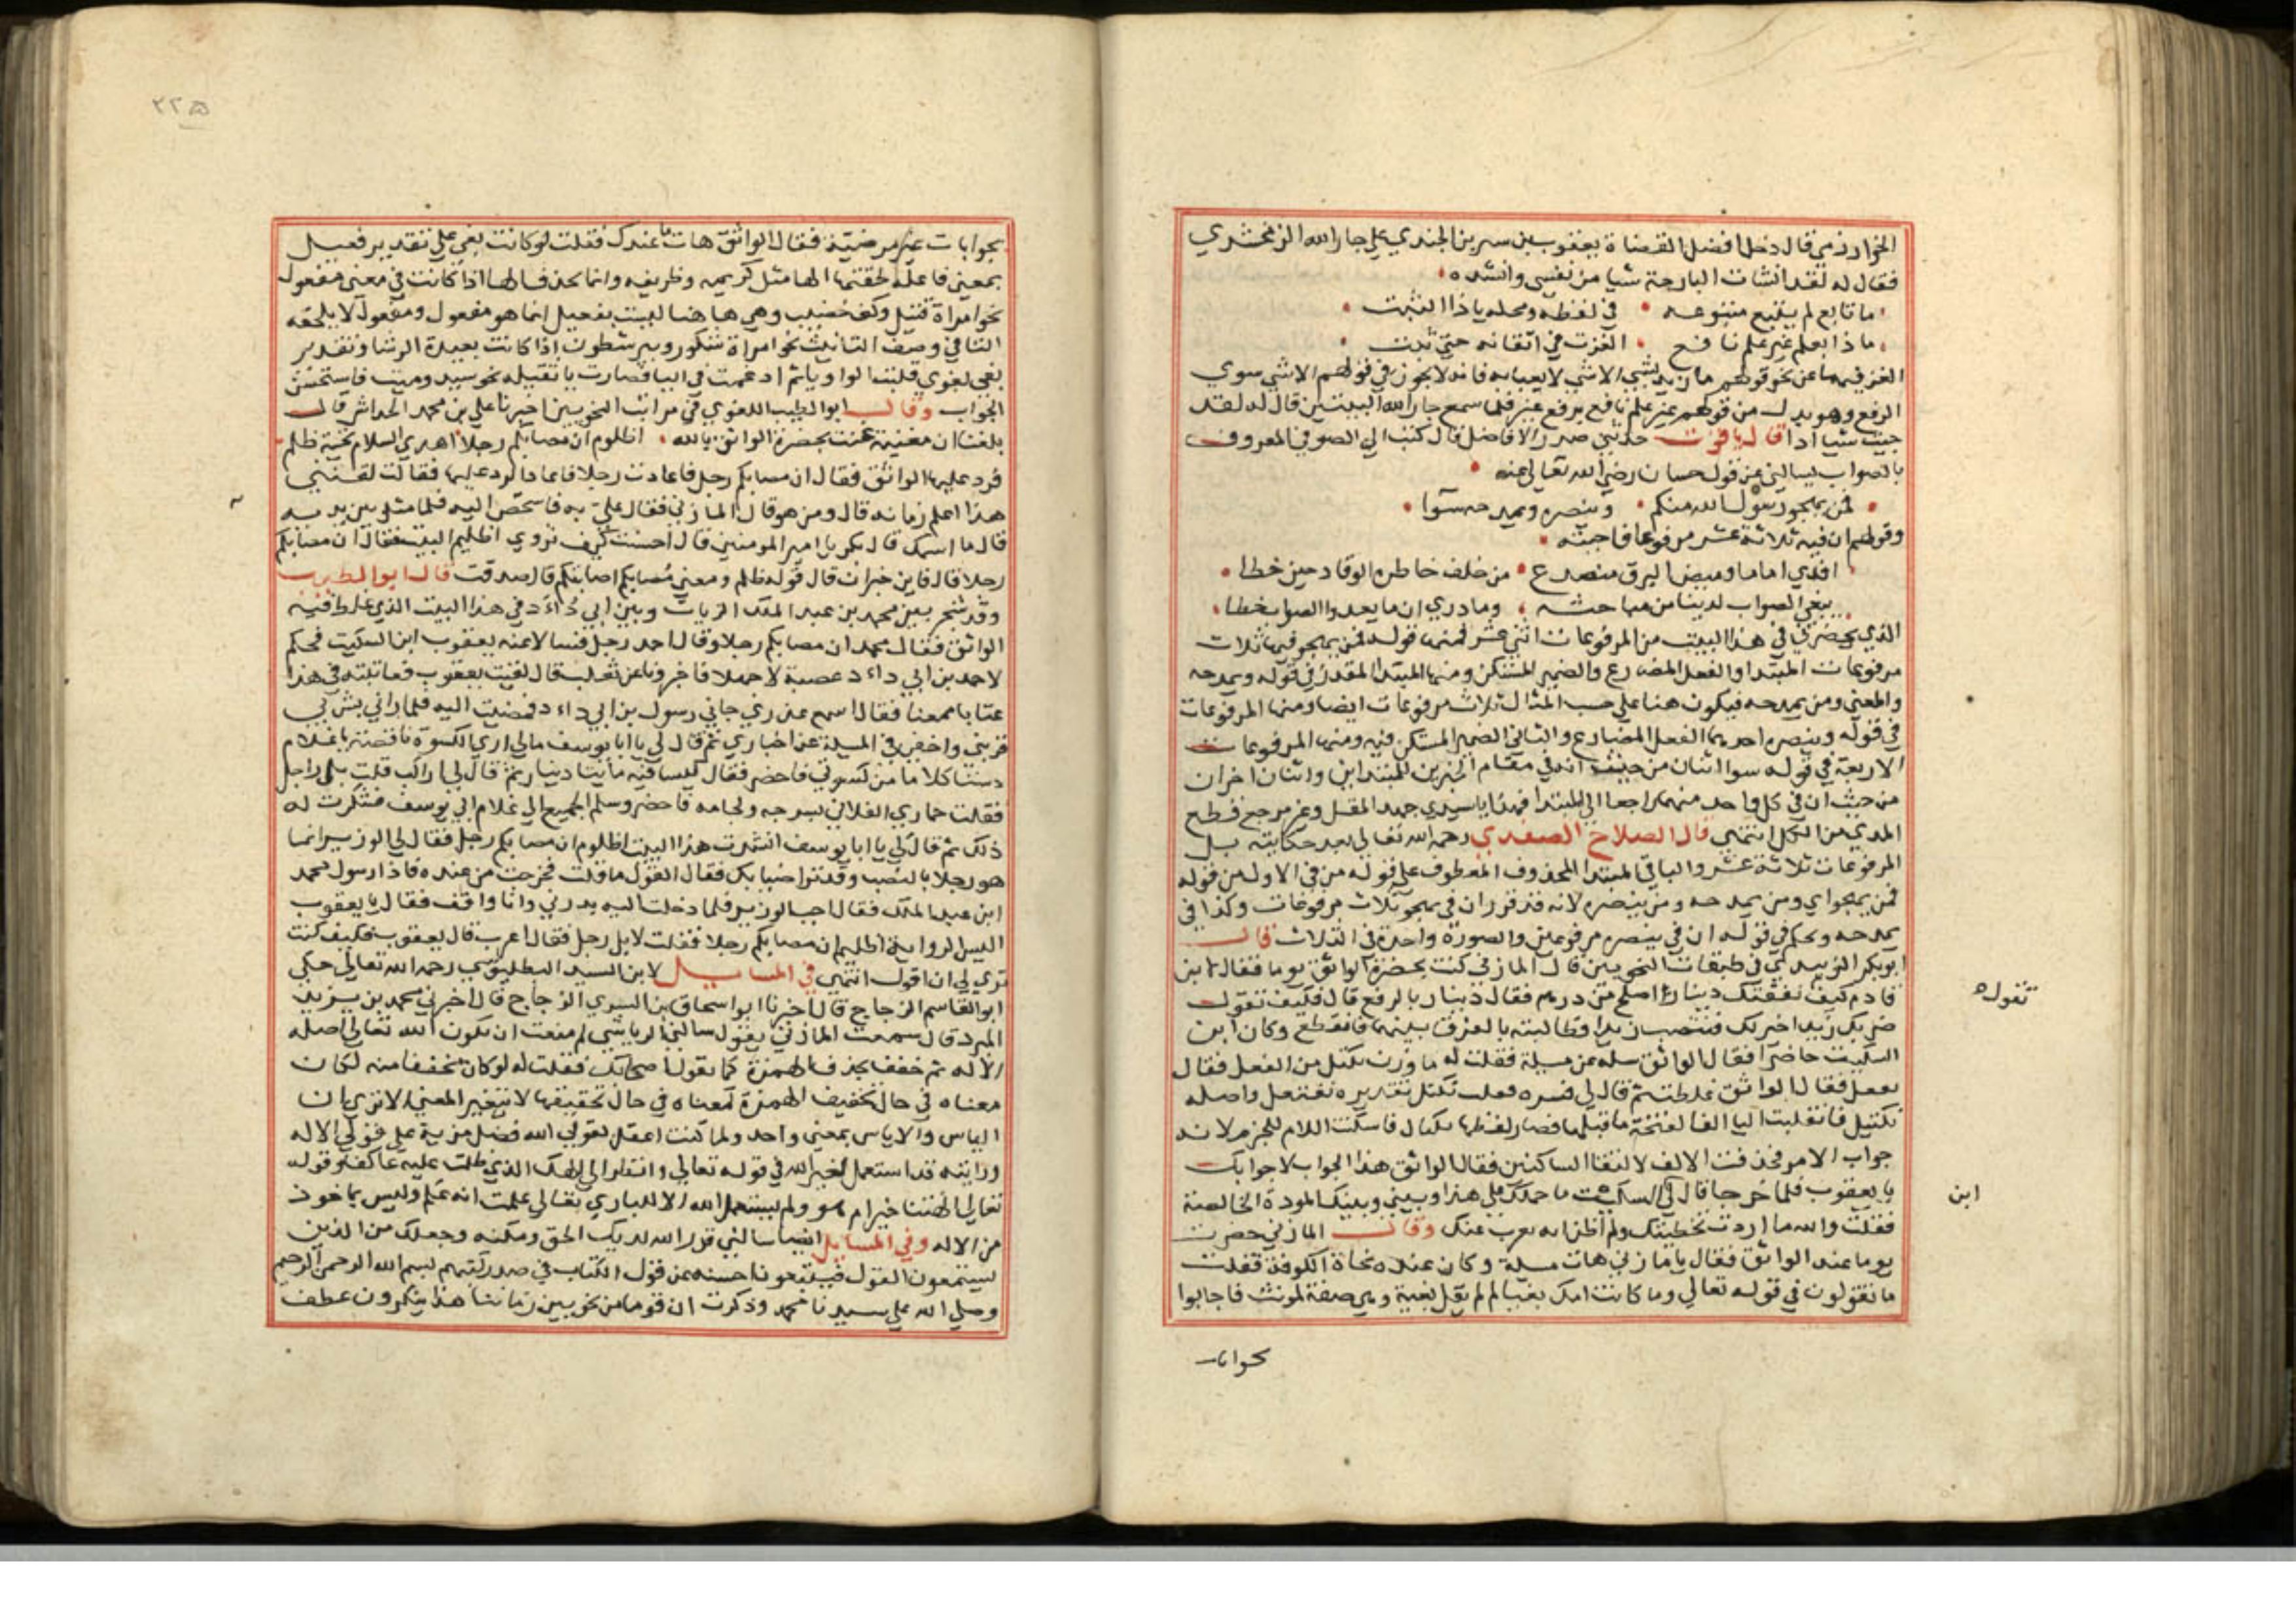 الخوارزمي قال دخل افضل القضاة يعقوب بن سرين الجندي علي جار الله الزمخشري
فقال له لقد انشات البارحة شيا من نفسي وانشده
ما تابع لم يتبع متبوعه في لفظه ومحله ياذا الثبت
ماذا بعلم غير علم نافع الغزت في اتقانه حتي ثبت
الغز فيهما عن نحو قولهم ما زيد بشي الا شي لا يعبا به فانه لا يجوز في قولهم الا شي سوي
الرفع وهو بدل من قولهم غير علم نافع برفع غير فلما سمع جار الله البيتين قال له لقد
جيت شيا ادا قال ياقوت حدثني صدر الافاضل قال كتب الي الصوفي المعروف
بالصواب يسالني عن قول حسان رضي الله تعالي عنه
فمن يهجو رسول الله منكم وينصره ويمدحه سوا
وقولهم ان فيه ثلاثة عشر مرفوعا فاجبته
افدي اماما وميض البرق منصرع من خلف خاطره الوقاد حين خطا
يبغي الصواب لدينا من مباحثه وما دري ان ما يعدوا الصواب خطا
الذي يحضرني في هذا البيت من المرفوعات اثني عشر فمنها قوله فمن يهجو فيها ثلاث
مرفوعات المبتدا والفعل المضارع والضمير المستكن ومنها المبتدا المقدر في قوله ويمدحه
والمعني ومن يمدحه فيكون هنا علي حسب المثال ثلاث مرفوعات ايضا ومنها المرفوعات
في قوله وينصره احدهما الفعل المضارع والثاني الضمير المستكن فيه ومنها المرفوعات
الاربعة في قوله سوا اثنان من حيث انه في مقام الخبرين للمبتداين واثنان اخران
من حيث ان في كل واحد منهما راجعا الي المبتدا فهذا يا سيدي جهد المقل وغير مرجع قطع
المدي من الكل انتهي قال الصلاح الصفدي رحمه الله تعالي بعد حكايته بل
المرفوعات ثلاثة عشر والباقي المبتدا المحذوف المعطوف علي قوله من في الاول من قوله
فمن يهجو اي ومن يمدحه ومن ينصره لانه قد قرر ان في يهجو ثلاث مرفوعات وكذا في
يمدحه وبحكم في قوله ان في ينصره مرفوعين والصورة واحدة في الثلاث قال
ابو بكر الزبيدي في طبقات النحويين قال المازني كنت بحضرة الواثق يوما فقال لابن
قادم كيف نفقتك دينارا اصلح من درهم فقال دينار بالرفع قال فكيف تقول
ضربك زيدا خير لك فتنصب زيدا فطالبته بالفرق بينهما فانقطع وكان ابن
السكيت حاضرا فقال الواثق سله عن مسيلة فقلت له ما وزن نكتل من الفعل فقال
نفعل فقال الواثق غلطت ثم قال لي فسره فقلت نكتل تقديره نفتعل واصله
نكتيل فانقلبت اليا الفا لفتحة ما قبلها فصار لفظها نكتال فاسكنت اللام للجزم لانه
جواب الامر فحذفت الالف لالتقا الساكنين فقال الواثق هذا الجواب لا جوابك
يا يعقوب فلما خرجنا قال لي السكيت ما حملك علي هذا وبيني وبينك المودة الخالصة
فقلت والله ما اردت تخطيتك ولم اظن انه يعزب عنك وقال المازني حضرت
يوما عند الواثق فقال يا مازني هات مسلة وكان عنده نحاة الكوفة فقلت
ما تقولون في قوله تعالي وما كانت امك بغيا لم لم يقل بغية وهي صفة لمونث فاجابوا
بجوابات
تقول
ابن
٢٢٥
بجوابات غير مرضية فقال الواثق هات ما عندك فقلت لو كانت بغي علي تقدير فعيل
بمعني فاعلة لحقتها الها مثل كريمه وظريفه وانما تحذف الها اذا كانت في معني مفعول
نحو امراة قتيل وكف خضيب وهي هاهنا ليست بفعيل انما هو فعول وفعول لا يلحقه
التا في وصف التانيث نحو امراة شكور وبير شطون اذا كانت بعيدة الرشا وتقدير
بغي بغوي قلبت الواو يا ثم ادغمت في اليا فصارت يا ثقيله نحو سيد وميت فاستحسن
الجواب وقال ابو الطيب اللغوي في مراتب النحويين اخبرنا علي بن محمد الخداشي قال
بلغنا ان مغنية غنت بحضرة الواثق بالله اظلوم ان مصابكم رجلا اهدي السلام تحية ظلم
فرد عليها الواثق فقال ان مصابكم رجل فاعادت رجلا فاعاد الرد عليها فقالت لقنني
هذا اعلم زمانه قال ومن هو قال المازني فقال علي به فاشخص اليه فلما مثل بين يديه
قال ما اسمك قال بكر يا امير المومنين قال احسنت كيف تروي اظليم البيت فقال ان مصابكم
رجلا قال فاين خبر ان قال قوله ظلم ومعني مصابكم اصابتكم قال صدقت قال ابو الطيب
وقد شجر بين محمد بن عبد الملك الزيات وبين ابي داءد في هذا البيت الذي غلط فيه
الواثق فقال محمد ان مصابكم رجلا وقال احمد رجل فسالا عنه يعقوب ابن السكيت فحكم
لاحمد بن ابي داءد عصبية لاحمد لا فاخبرونا عن ثعلب قال لقيت يعقوب فعاتبته في هذا
عتابا ممعنا فقال اسمع عذري جاني رسول بن ابي داءد فمضيت اليه فلما راني بش بي
قربني واحفي في المسيلة عن اخباري ثم قال لي يا ابا يوسف مالي اري الكسوة ناقصة يا غلام
دستا كاملا من كسوتي فاحضر فقال كيسا فيه مايتا دينار ثم قال لي اراكب قلت بلي راجل
فقلت حماري الفلاني بسرجه ولجامه فاحضر وسلم الجميع الي غلام ابي يوسف فشكرت له
ذلك ثم قال لي يا ابا يوسف انشدت هذا البيت اظلوم ان مصابكم رجل فقال لي الوزير انما
هو رجلا بالنصب وقد تراضينا بك فقال القول ما قلت فخرجت من عنده فاذا رسول محمد
ابن عبد الملك فقال اجب الوزير فلما دخلت اليه بدرني وانا واقف فقال يا يعقوب
اليس الرواية اظليم ان مصابكم رجلا فقلت لا بل رجل فقال اعرب قال يعقوب فكيف كنت
تري لي ان اقول انتهي في المسايل لابن السيد البطليوسي رحمه الله تعالي حكي
ابو القاسم الزجاجي قال اخبرنا ابو اسحاق بن السري الزجاج قال اخبرني محمد بن يزيد
المبرد قال سمعت المازني يقول سالني الرياشي لم منعت ان يكون الله تعالي اصله
الاله ثم خفف بحذف الهمزة كما يقول اصحابك فقلت له لو كان مخففا منه لكان
معناه في حال تخفيف الهمزة كمعناه في حال تحقيقها لا يتغير المعني الا تري ان
الياس والاياس بمعني واحد ولما كنت اعقل لقولي الله فضل مزية علي قولي الاله
ورايته قد استعمل لغير الله في قوله تعالي وانظر الي الهك الذي ظلت عليه عاكفا وقوله
تعالي الهتنا خير ام هو ولم يستعمل الله الا للباري تعالي علمت انه علم وليس بماخوذ
من الاله وفي المسايل ايضا سالتني قرر الله لديك الحق ومكنه وجعلك من الذين
يستمعون القول فيتبعون احسنه عن قول الكتاب في صدر كتبهم بسم الله الرحمن الرحيم
وصلي الله علي سيدنا محمد وذكرت ان قوما من نحويين زماننا هذا ينكرون عطف